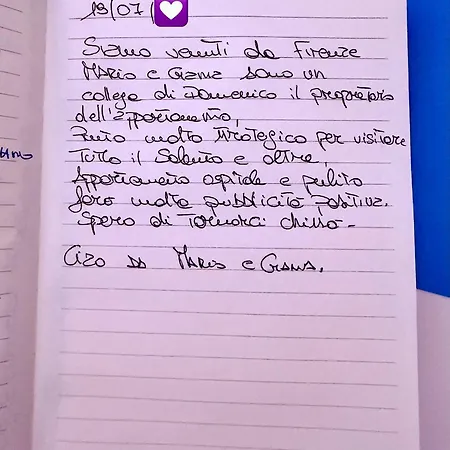 19/07/
Siamo venuti da Firenze
Mario e Gianna sono un
collega di Domenico il proprietario
dell'appartamento,
Punto molto strategico per visitare
Tutto il Salento e oltre,
Appartamento ospitale e pulito
farò molta pubblicità positiva.
Spero di Tornarci chissà-
Ciao da Mario e Gianna.